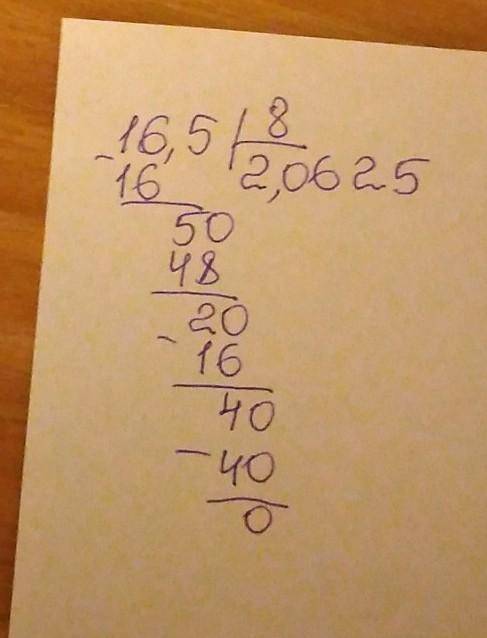 16,5 | 8
- 16 2,0625
50
48
20
- 16
40
- 40
0